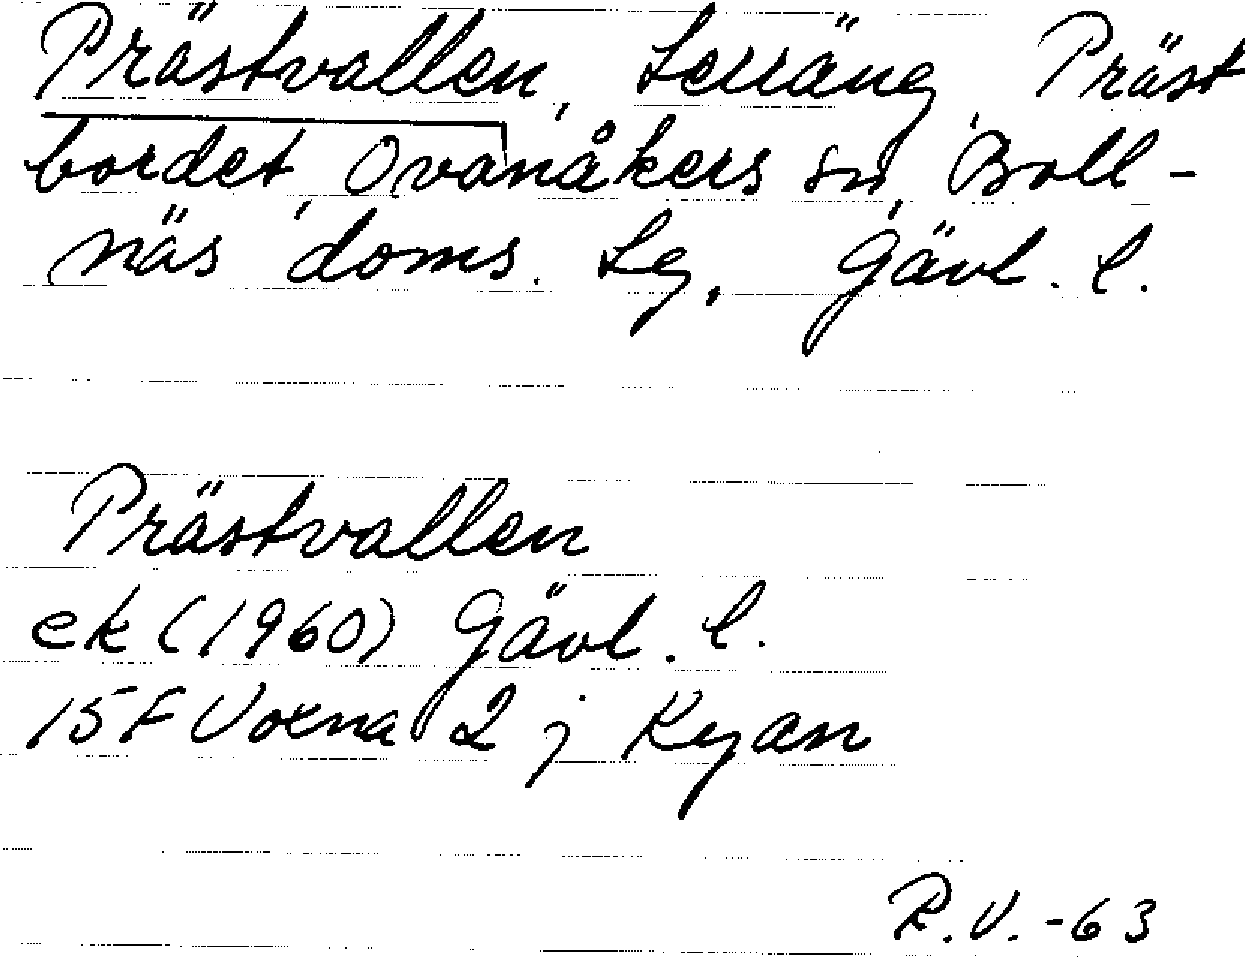 Prästvallen, Lerräng, Präst
bordet, Ovanåkers sn, Boll-
näs doms. Lg, Gävl. l.
Prästvallen
ek (1960) Gävl. l.
15F Voxna 2 j Kyan
R.V.-63